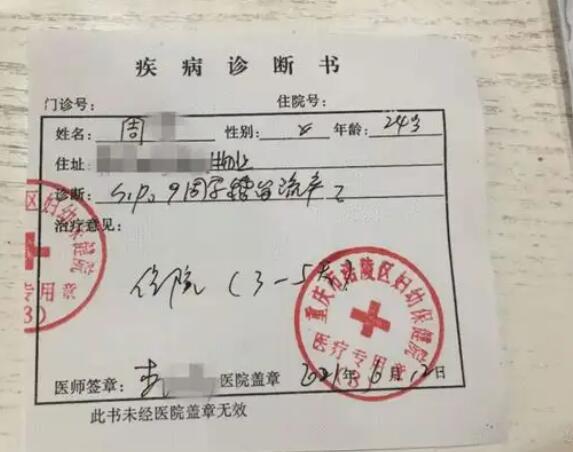 疾病诊断书
门诊号: 住院号:
姓名: 周 性别: 女 年龄: 24岁
住址
诊断: 9周 流产
治疗意见:
住院(3-5天)
重庆市涪陵区妇幼保健院
医疗专用章
(3)
区妇幼保健院
专用章
(3)
医师签章: 医院盖章 2021年6月12日
此书未经医院盖章无效